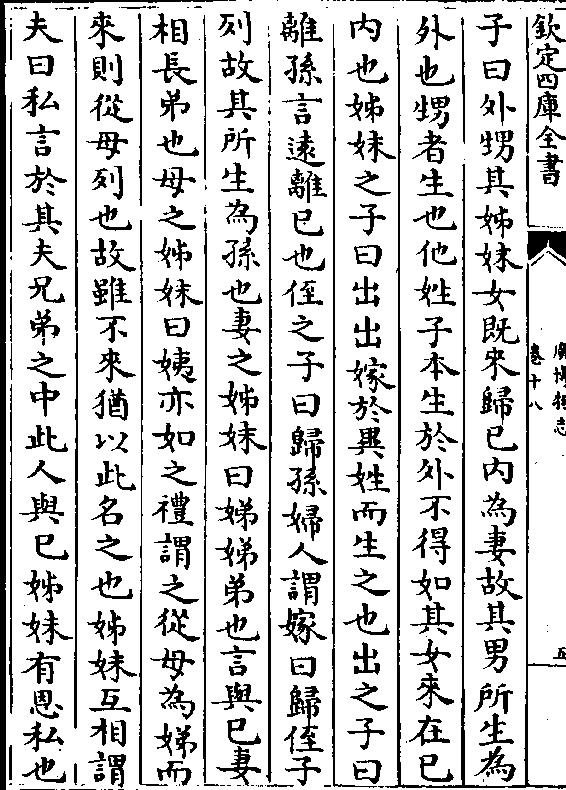 欽定四庫全書
廣博物志
卷十八
五
子曰外甥其姊妹女既來歸已内為妻故其男所生為
外也甥者生也他姓子本生於外不得如其女來在已
内也姊妹之子曰出出嫁於異姓而生之也出之子曰
離孫言遠離已也侄之子曰歸孫婦人謂嫁曰歸侄子
列故其所生為孫也妻之姊妹曰娣娣弟也言與已妻
相長弟也母之姊妹曰姨亦如之禮謂之從母為娣而
來則從母列也故雖不來猶以此名之也姊妹互相謂
夫曰私言於其夫兄弟之中此人與已姊妹有恩私也